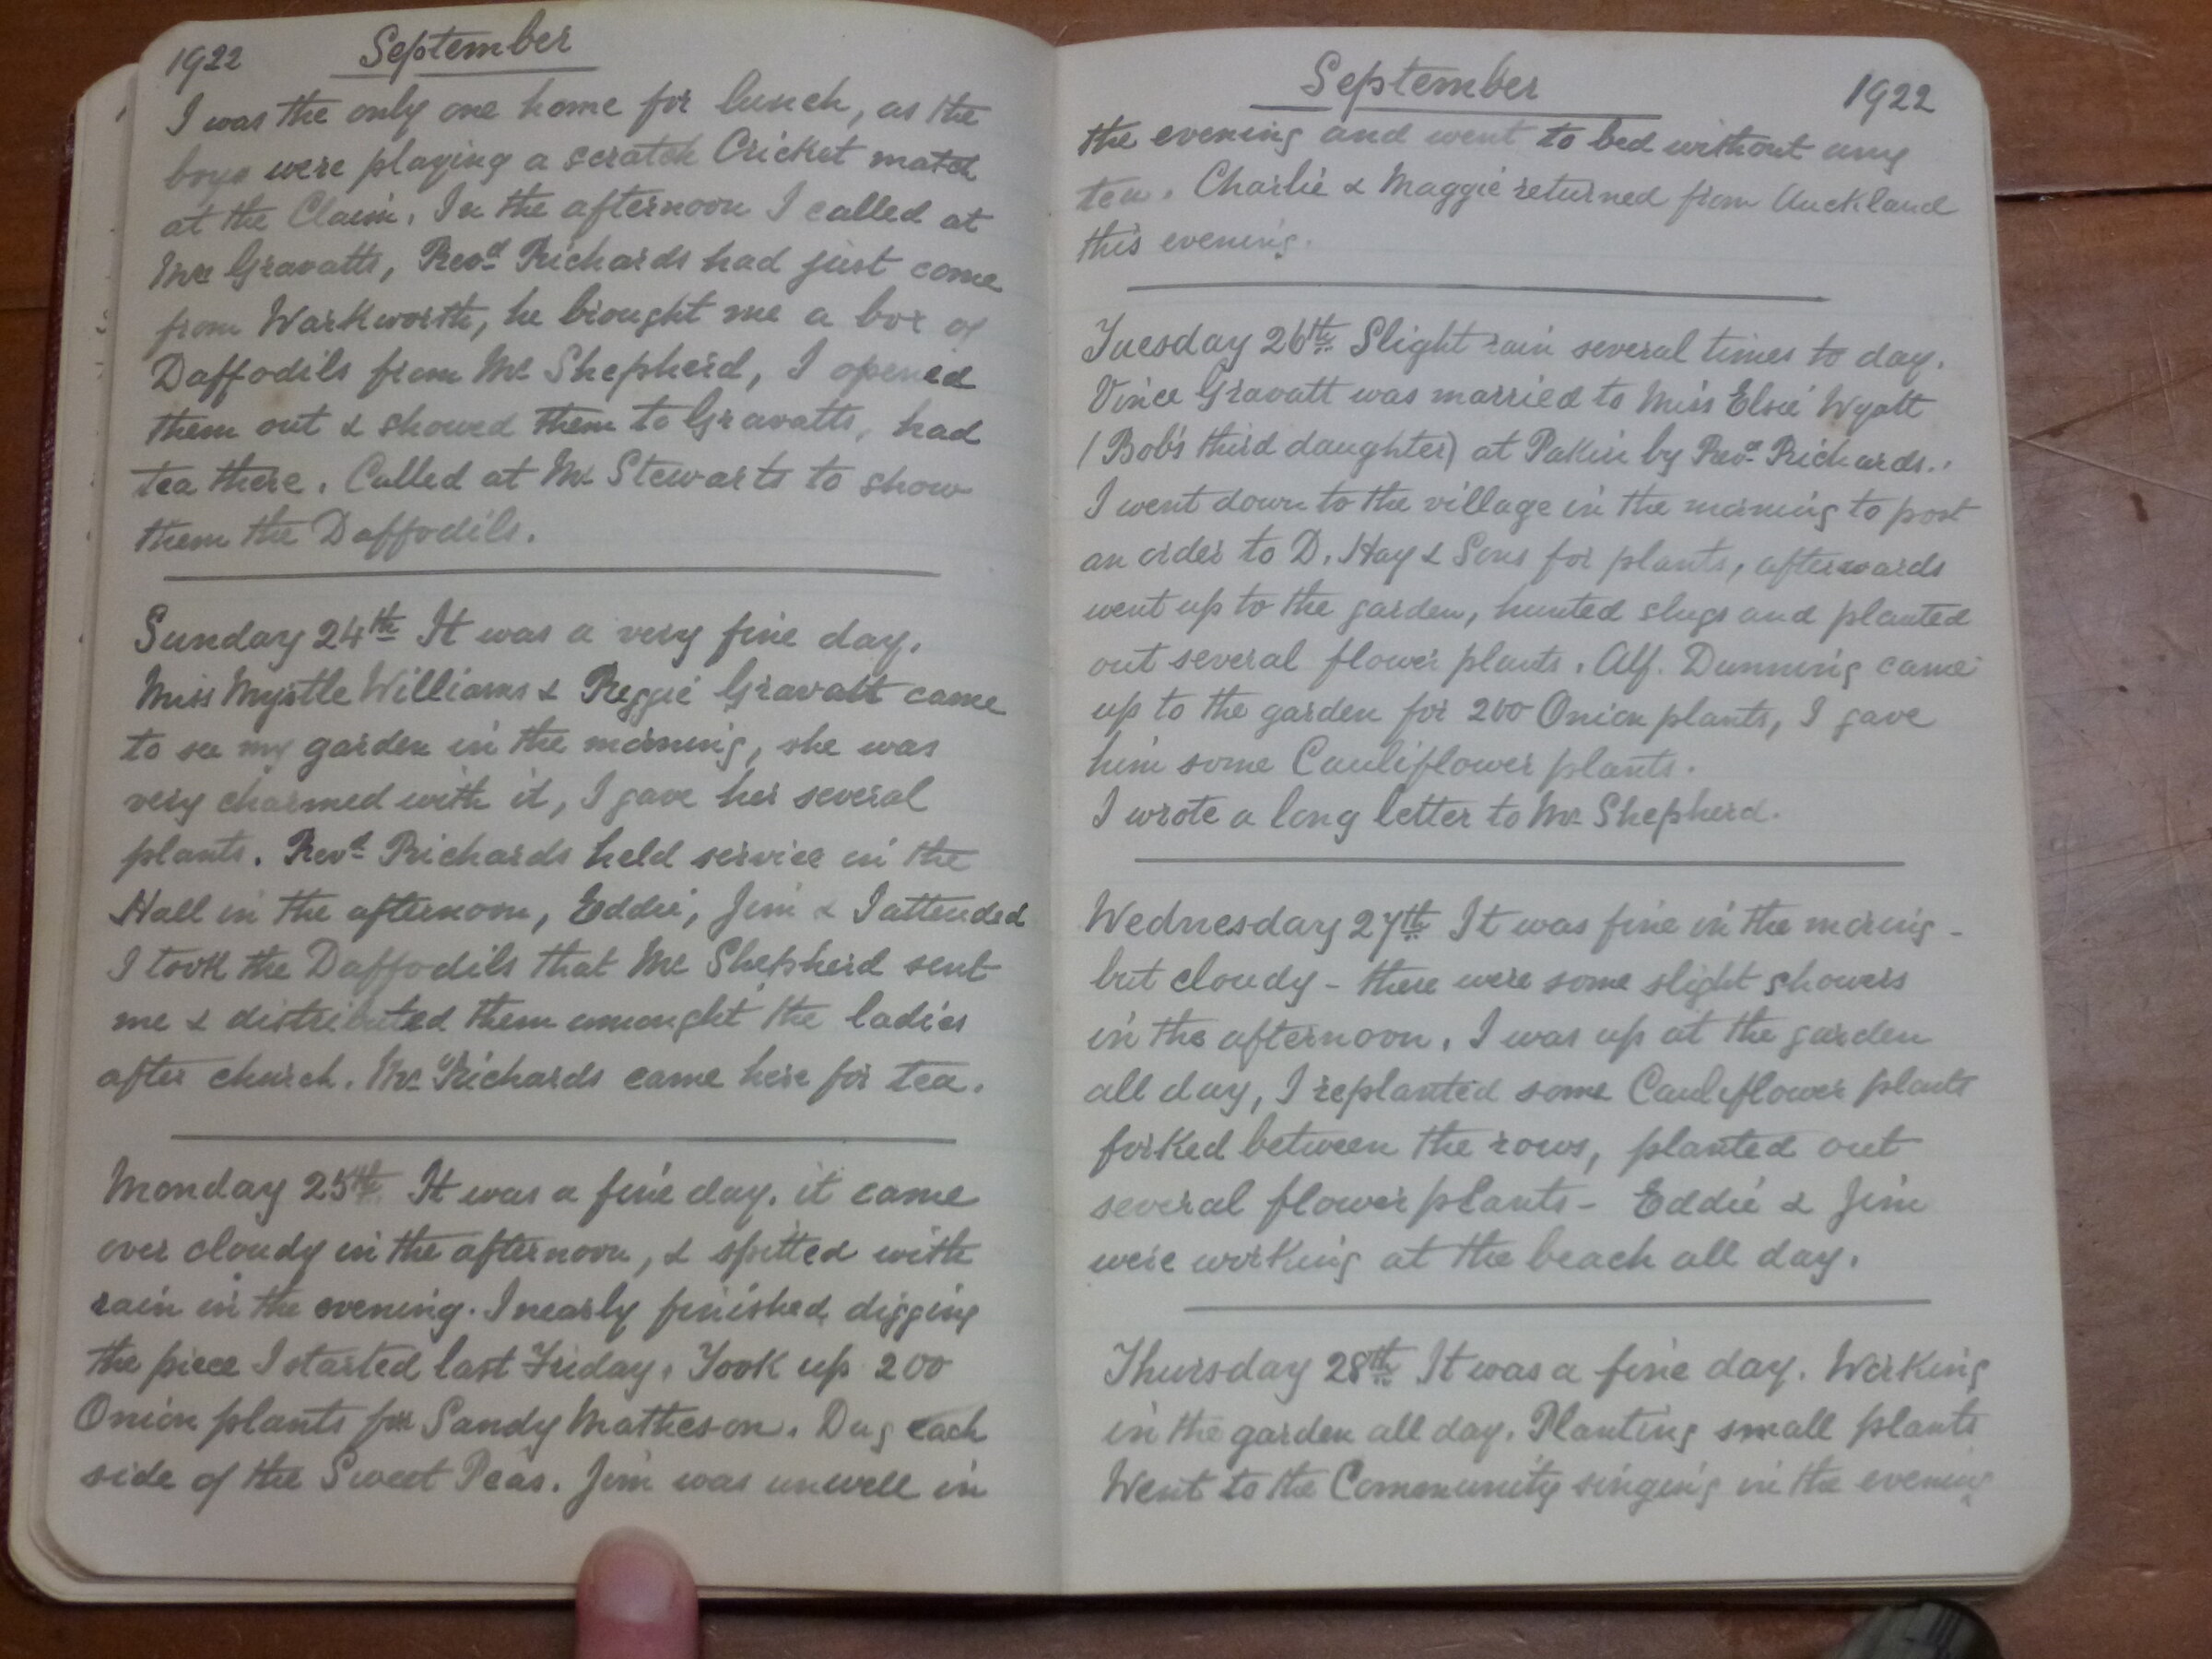 1922 September
I was the only one home for lunch, as the
boys were playing a scratch Cricket match
at the Claim. In the afternoon I called at
Mrs Gravatts, Revd Richards had just come
from Warkworth, he brought me a box of
Daffodils from Mr Shepherd, I opened
them out & showed them to Gravatts, had
tea there. Called at Mr Stewarts to show
them the Daffodils.
Sunday 24th It was a very fine day.
Miss Myrtle Williams & Reggie Gravatt came
to see my garden in the morning, she was
very charmed with it, I gave her several
plants. Revd Richards held service in the
Hall in the afternoon, Eddie, Jim & I attended
I took the Daffodils that Mr Shepherd sent
me & distributed them amonght the ladies
after church. Mr Richards came here for tea.
Monday 25th It was a fine day. it came
over cloudy in the afternoon, & spitted with
rain in the evening. I nearly finished digging
the piece I started last Friday. Took up 200
Onion plants for Sandy Matheson. Dug each
side of the Sweet Peas. Jim was unwell in
September 1922
the evening and went to bed without any
tea. Charlie & Maggie returned from Auckland
this evening.
Tuesday 26th Slight rain several times to day.
Vince Gravatt was married to Miss Elsie Wyatt
(Bob's third daughter) at Pakiri by Revd Richards.
I went down to the village in the morning to post
an order to D. Hay & Sons for plants, afterwards
went up to the garden, hunted slugs and planted
out several flower plants. Alf. Dunning came
up to the garden for 200 Onion plants, I gave
him some Cauliflower plants.
I wrote a long letter to Mr Shepherd.
Wednesday 27th It was fine in the morning -
but cloudy - there were some slight showers
in the afternoon. I was up at the garden
all day, I replanted some Cauliflower plants
forked between the rows, planted out
several flower plants - Eddie & Jim
were working at the beach all day.
Thursday 28th It was a fine day. Working
in the garden all day. Planting small plants
Went to the Community singing in the evening